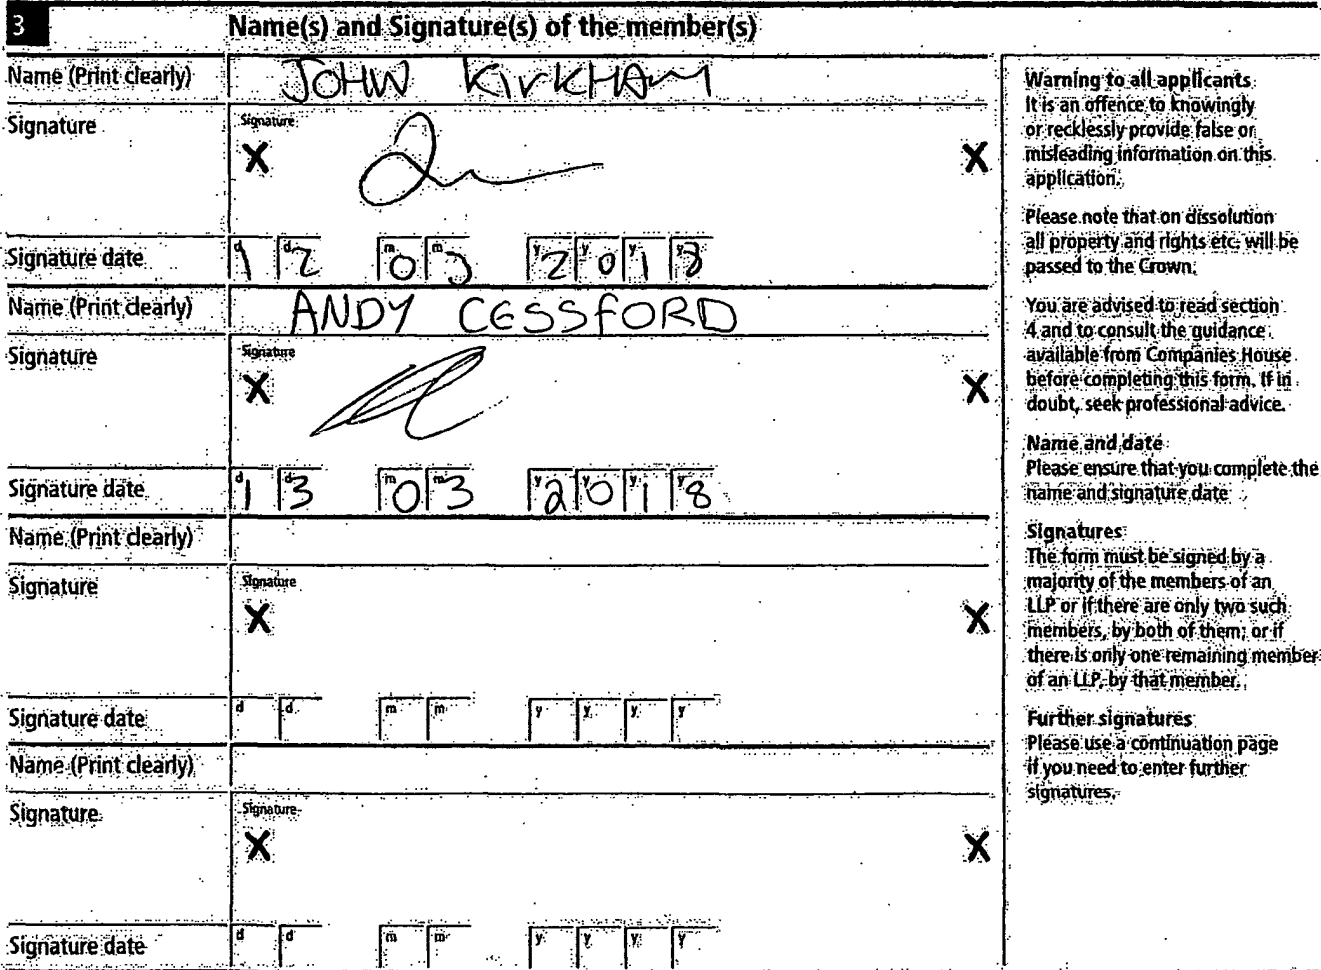 3 Name(s) and Signature(s) of the member(s)
Name (Print clearly) JOHN KIRKHAM
Signature Signature
X X
Signature date d d m m y y y y
12 03 2018
Name (Print clearly) ANDY CESSFORD
Signature Signature
X X
Signature date d d m m y y y y
13 03 2018
Name (Print clearly)
Signature Signature
X X
Signature date d d m m y y y y
Name (Print clearly)
Signature Signature
X X
Signature date d d m m y y y y
Warning to all applicants
It is an offence to knowingly
or recklessly provide false or
misleading information on this
application.
Please note that on dissolution
all property and rights etc. will be
passed to the Crown.
You are advised to read section
4 and to consult the guidance
available from Companies House
before completing this form. If in
doubt, seek professional advice.
Name and date
Please ensure that you complete the
name and signature date
Signatures
The form must be signed by a
majority of the members of an
LLP or if there are only two such
members, by both of them; or if
there is only one remaining member
of an LLP, by that member.
Further signatures
Please use a continuation page
if you need to enter further
signatures.